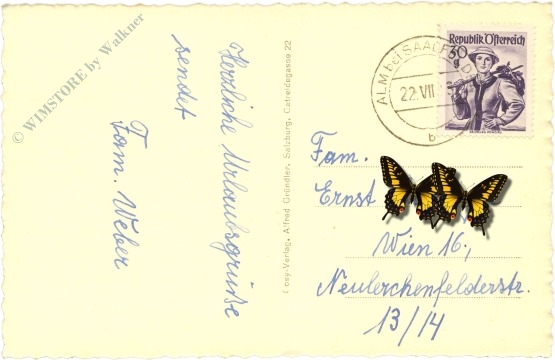 © WIMSTORE by Walkner
Herzliche Urlaubsgrüße
sendet
Fam. Weber
Cosy-Verlag, Alfred Gründler, Salzburg,
22
ALM bei SAALF
22.VII
b
Republik Österreich
30
g
Fam.
Ernst
Wien 16.,
Neulerchenfelderstr.
13/14